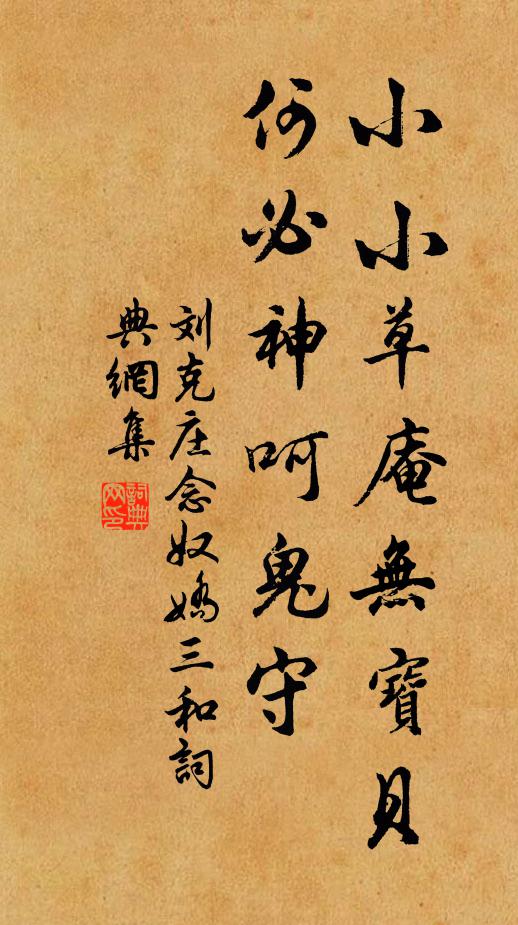 小小草庵無寶貝
何必神呵鬼守
刘克庄念奴嬌三和詞
典網集
詞典
网印